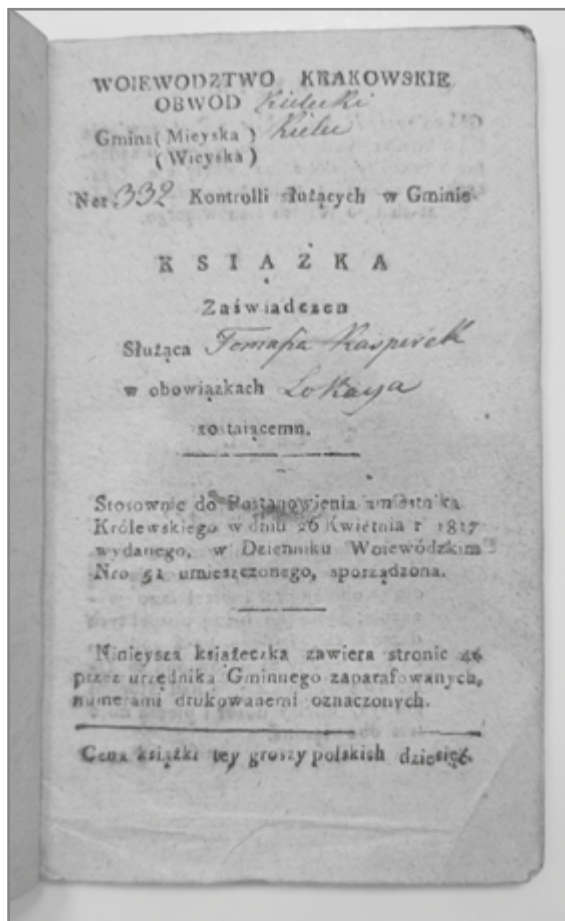 WOIEWODZTWO KRAKOWSKIE
OBWOD Kielecki
Gmina ( Mieyska ) Kielce
( Wieyska )
Ner. 332 Kontrolli służących w Gminie
KSIĄZKA
Zaświadczen
Służąca Tomasza Kasperek
w obowiązkach Lokaya
zostaiącemu.
Stosownie do Postanowienia
Królewskiego w dniu 26 Kwietnia r 1817
wydanego, w Dzienniku Woiewódzkim
Nro 51 umieszczonego, sporządzona.
Ninieysza książeczka zawiera stronic 46
przez urzędnika Gminnego zaparafowanych,
numerami drukowanemi oznaczonych.
Cena książki tey groszy polskich dziesięć.